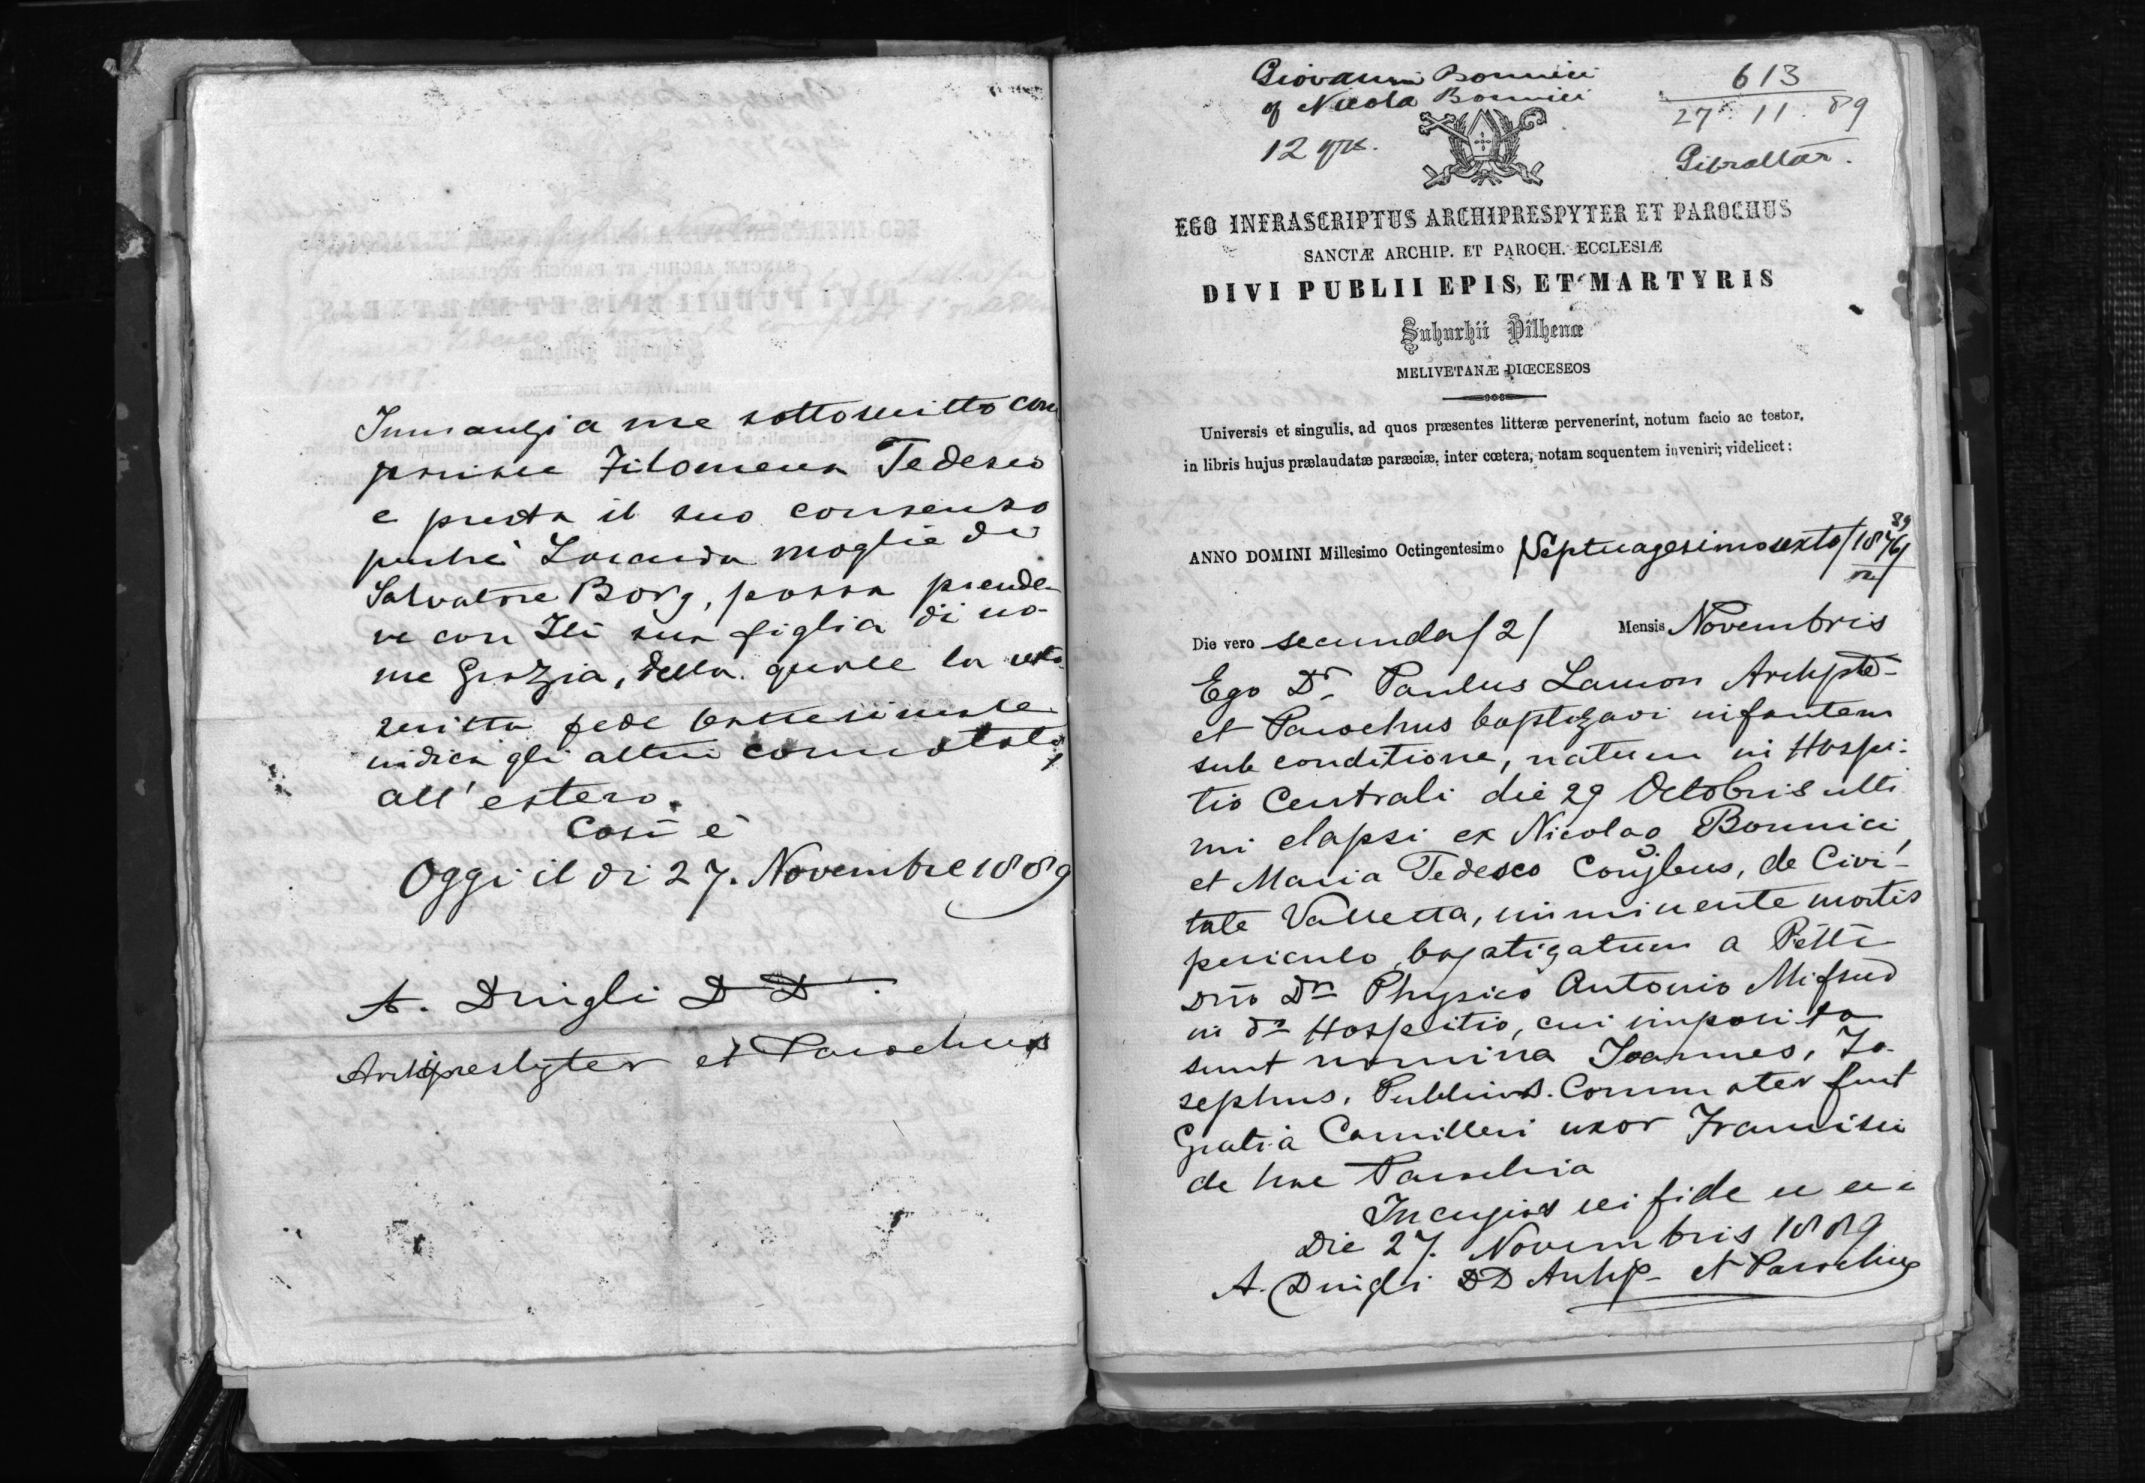 Innanzi a me sottoscritto com
parisce Filomena Tedesco
e presta il suo consenso
perchè Locarda moglie di
Salvatore Borg, possa prende-
re con se sua figlia di no-
me Grazia, della quale la
scritta fede
indica gli altri connotati,
all' estero.
Così è
Oggi il di 27. Novembre 1889
A. Dingli D D.
Archipresbyter et Parochus
Giovanni Bonnici
of Nicola Bonnici
12 yrs.
613
27. 11. 89
Gibraltar.
EGO INFRASCRIPTUS ARCHIPRESPYTER ET PAROCHUS
SANCTÆ ARCHIP. ET PAROCH. ECCLESIÆ
DIVI PUBLII EPIS, ET MARTYRIS
Suburbii Vilhenæ
MELIVETANÆ DIŒCESEOS
Universis et singulis, ad quos præsentes litteræ pervenerint, notum facio ac testor,
in libris hujus prælaudatæ paræciæ, inter cœtera, notam sequentem inveniri; videlicet:
ANNO DOMINI Millesimo Octingentesimo Septuagesimosexto /1876/
Die vero secunda /2/ Mensis Novembris
Ego Dr. Paulus Lamon Archpte-
et Parochus baptizavi infantem
sub conditione, natum in Hospi-
tio Centrali die 29 Octobris ulti
mi elapsi ex Nicolao Bonnici,
et Maria Tedesco Conjbus, de Civi-
tate Valletta, imminente mortis
periculo baptizatum a
Dño Dr Physico Antonio Mifsud
in do Hospitio, cui imposita
sunt nomina Joannes, Jo-
sephus, Publius. Commater fuit
Gratia Camilleri uxor Francisci
de hac Parochia
In cujus rei fide
Die 27. Novembris 1889
A. Dingli DD Archip- et Parochus